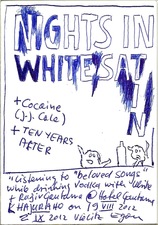 NIGHTS IN
WHITE SAT
IN
+ Cocaine
(J.J. Cale)
+ TEN YEARS
AFTER
"Listening to "beloved songs"
while drinking Vodka with
+ Rajiv Gautama @ Hotel Gautama
KHAJURAHO on 19 VIII 2012
IX 2012